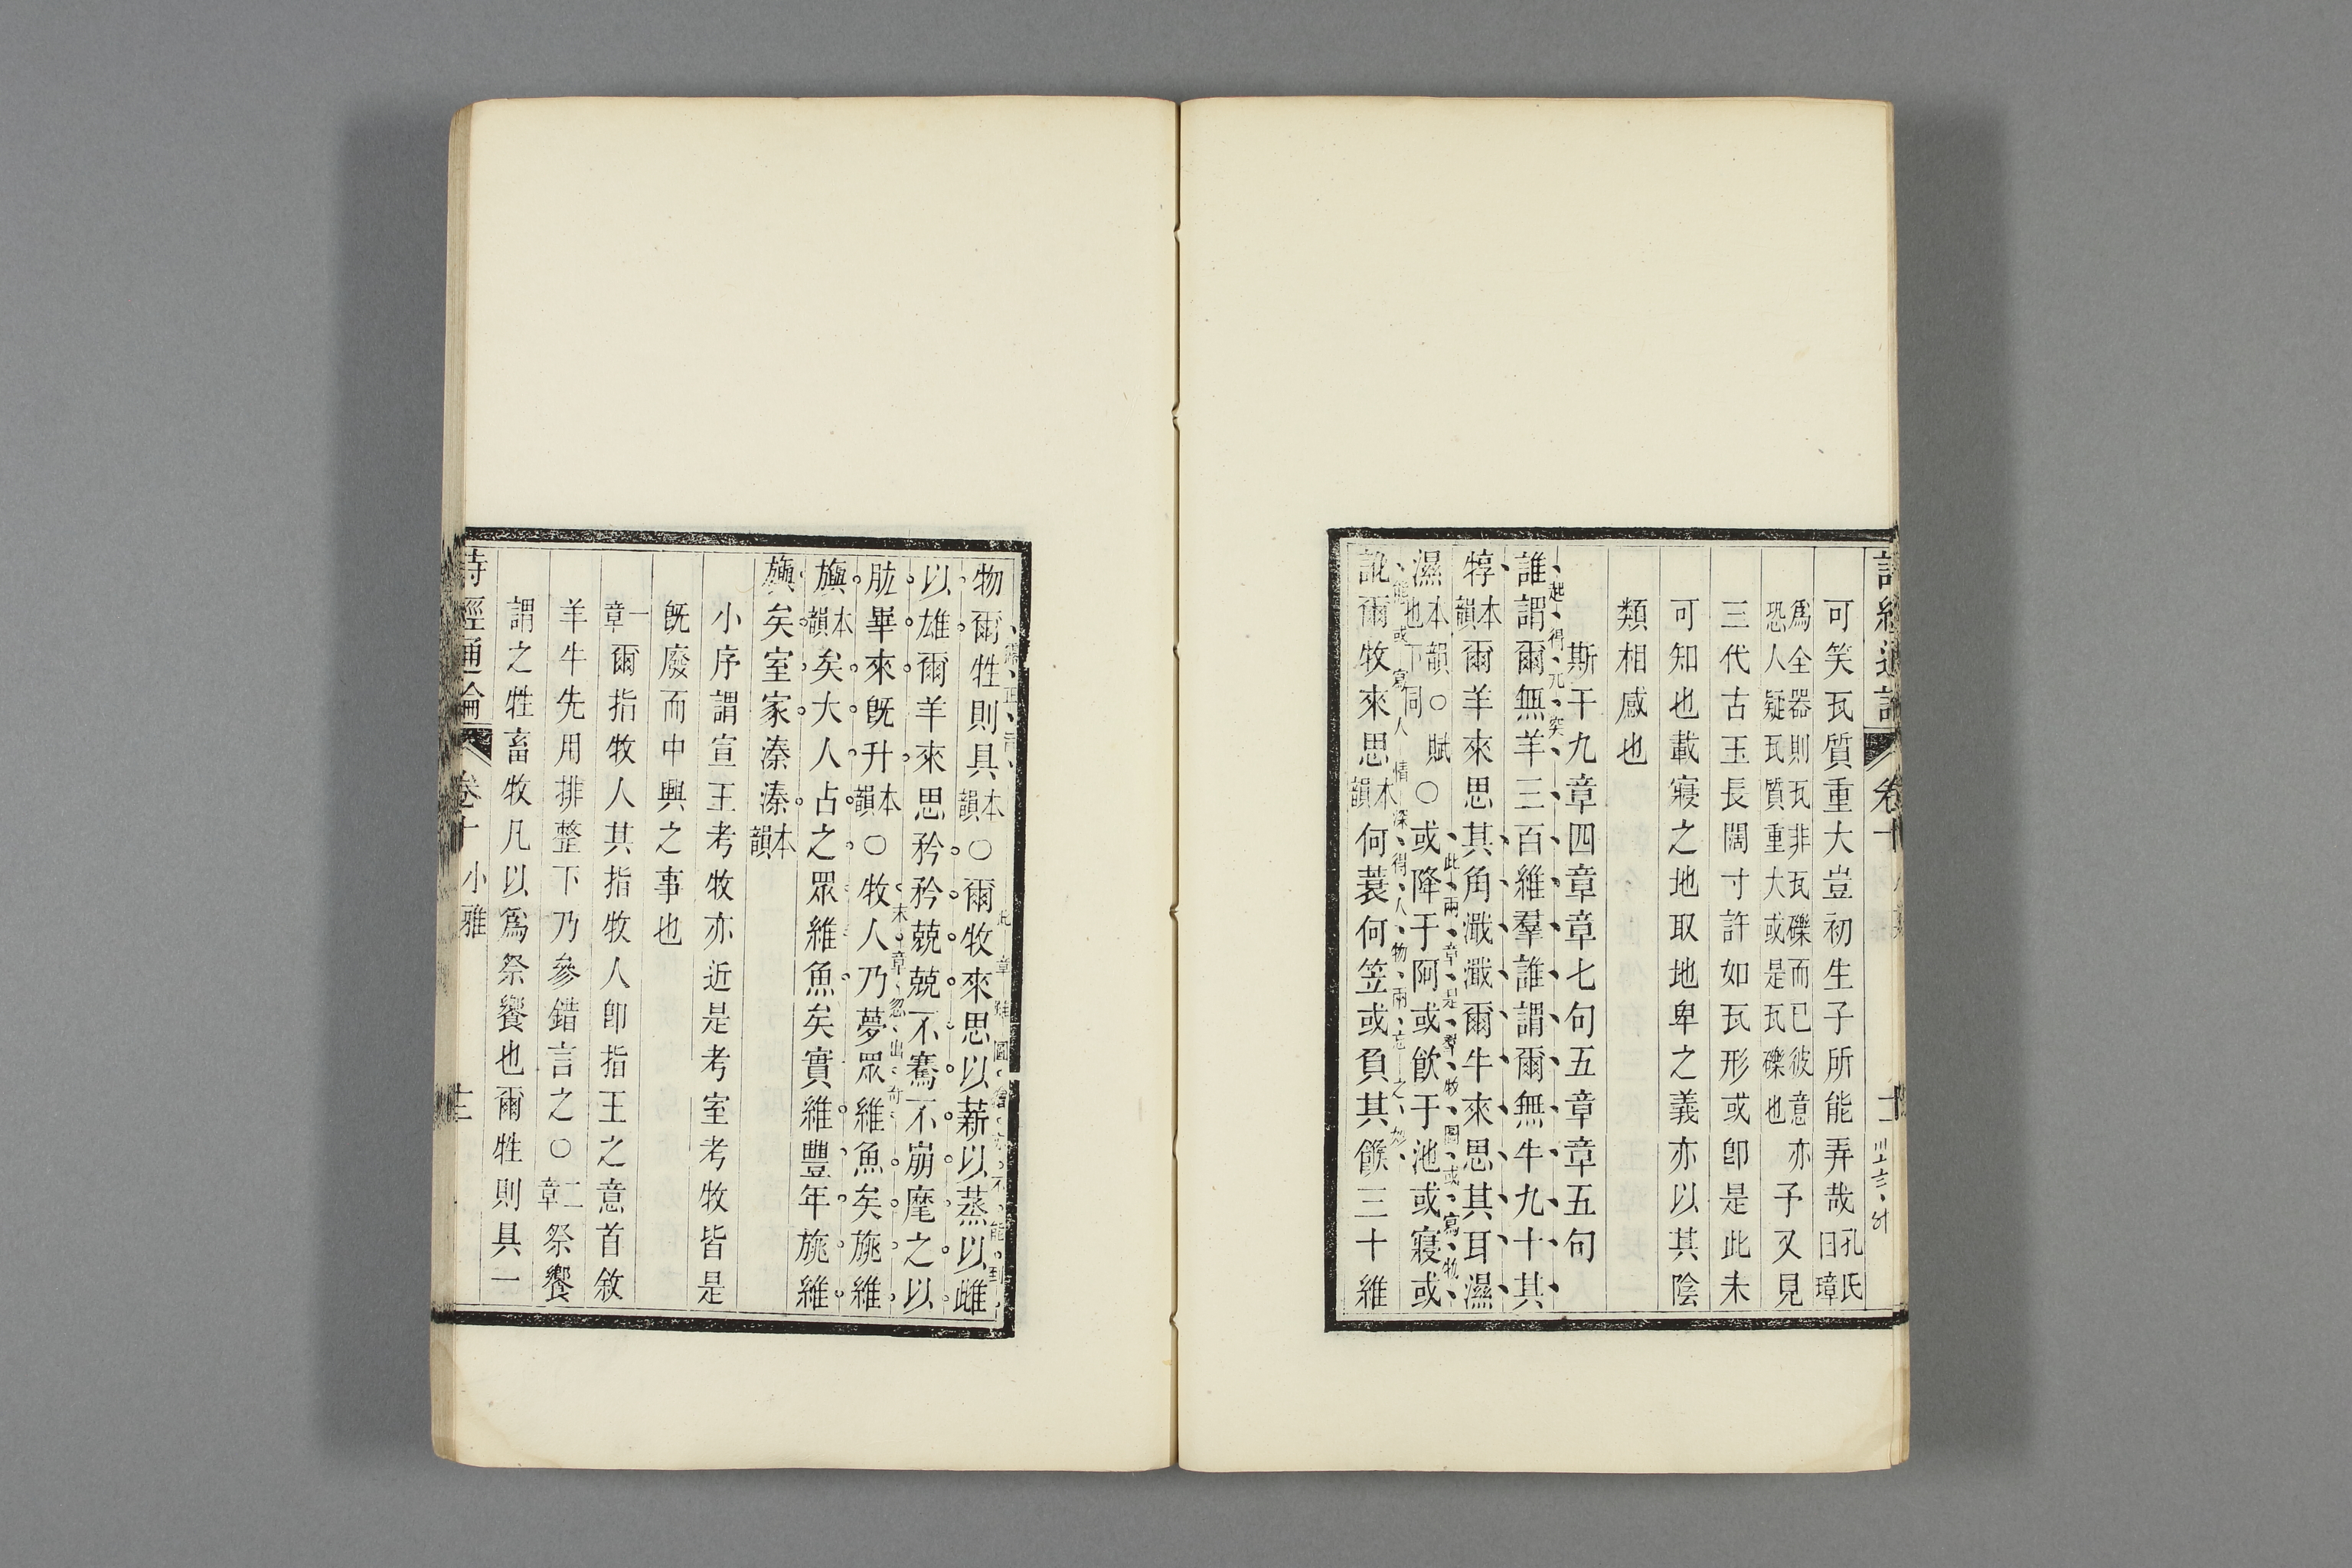 可笑瓦質重大豈初生子所能弄哉孔氏曰璋
爲全器則瓦非瓦礫而已彼意亦
恐人疑瓦質重大或是瓦礫也予又見
三代古玉長闊寸許如瓦形或卽是此未
可知也載寢之地取地卑之義亦以其陰
類相感也
斯干九章四章章七句五章章五句
起得兀突
誰謂爾無羊三百維羣誰謂爾無牛九十其
犉本韻爾羊來思其角濈濈爾牛來思其耳濕
此兩章是羣牧圖或寫物
濕本韻也下同○賦○或降于阿或飮于池或寢或
態或寫人情深得人物兩忘之妙
訛爾牧來思本韻何蓑何笠或負其餱三十維
物爾牲則具本韻○爾牧來思以薪以蒸以雌
以雄爾羊來思矜矜兢兢不騫不崩麾之以
末章忽出奇
肱畢來旣升本韻○牧人乃夢眾維魚矣旐維
旟矣本韻大人占之眾維魚矣實維豐年旐維
旟矣室家溱溱本韻
小序謂宣王考牧亦近是考室考牧皆是
旣廢而中興之事也
一章爾指牧人其指牧人卽指王之意首敘
羊牛先用排整下乃參錯言之○二章祭饗
謂之牲畜牧凡以爲祭饗也爾牲則具一
詩經通論 卷十 小雅